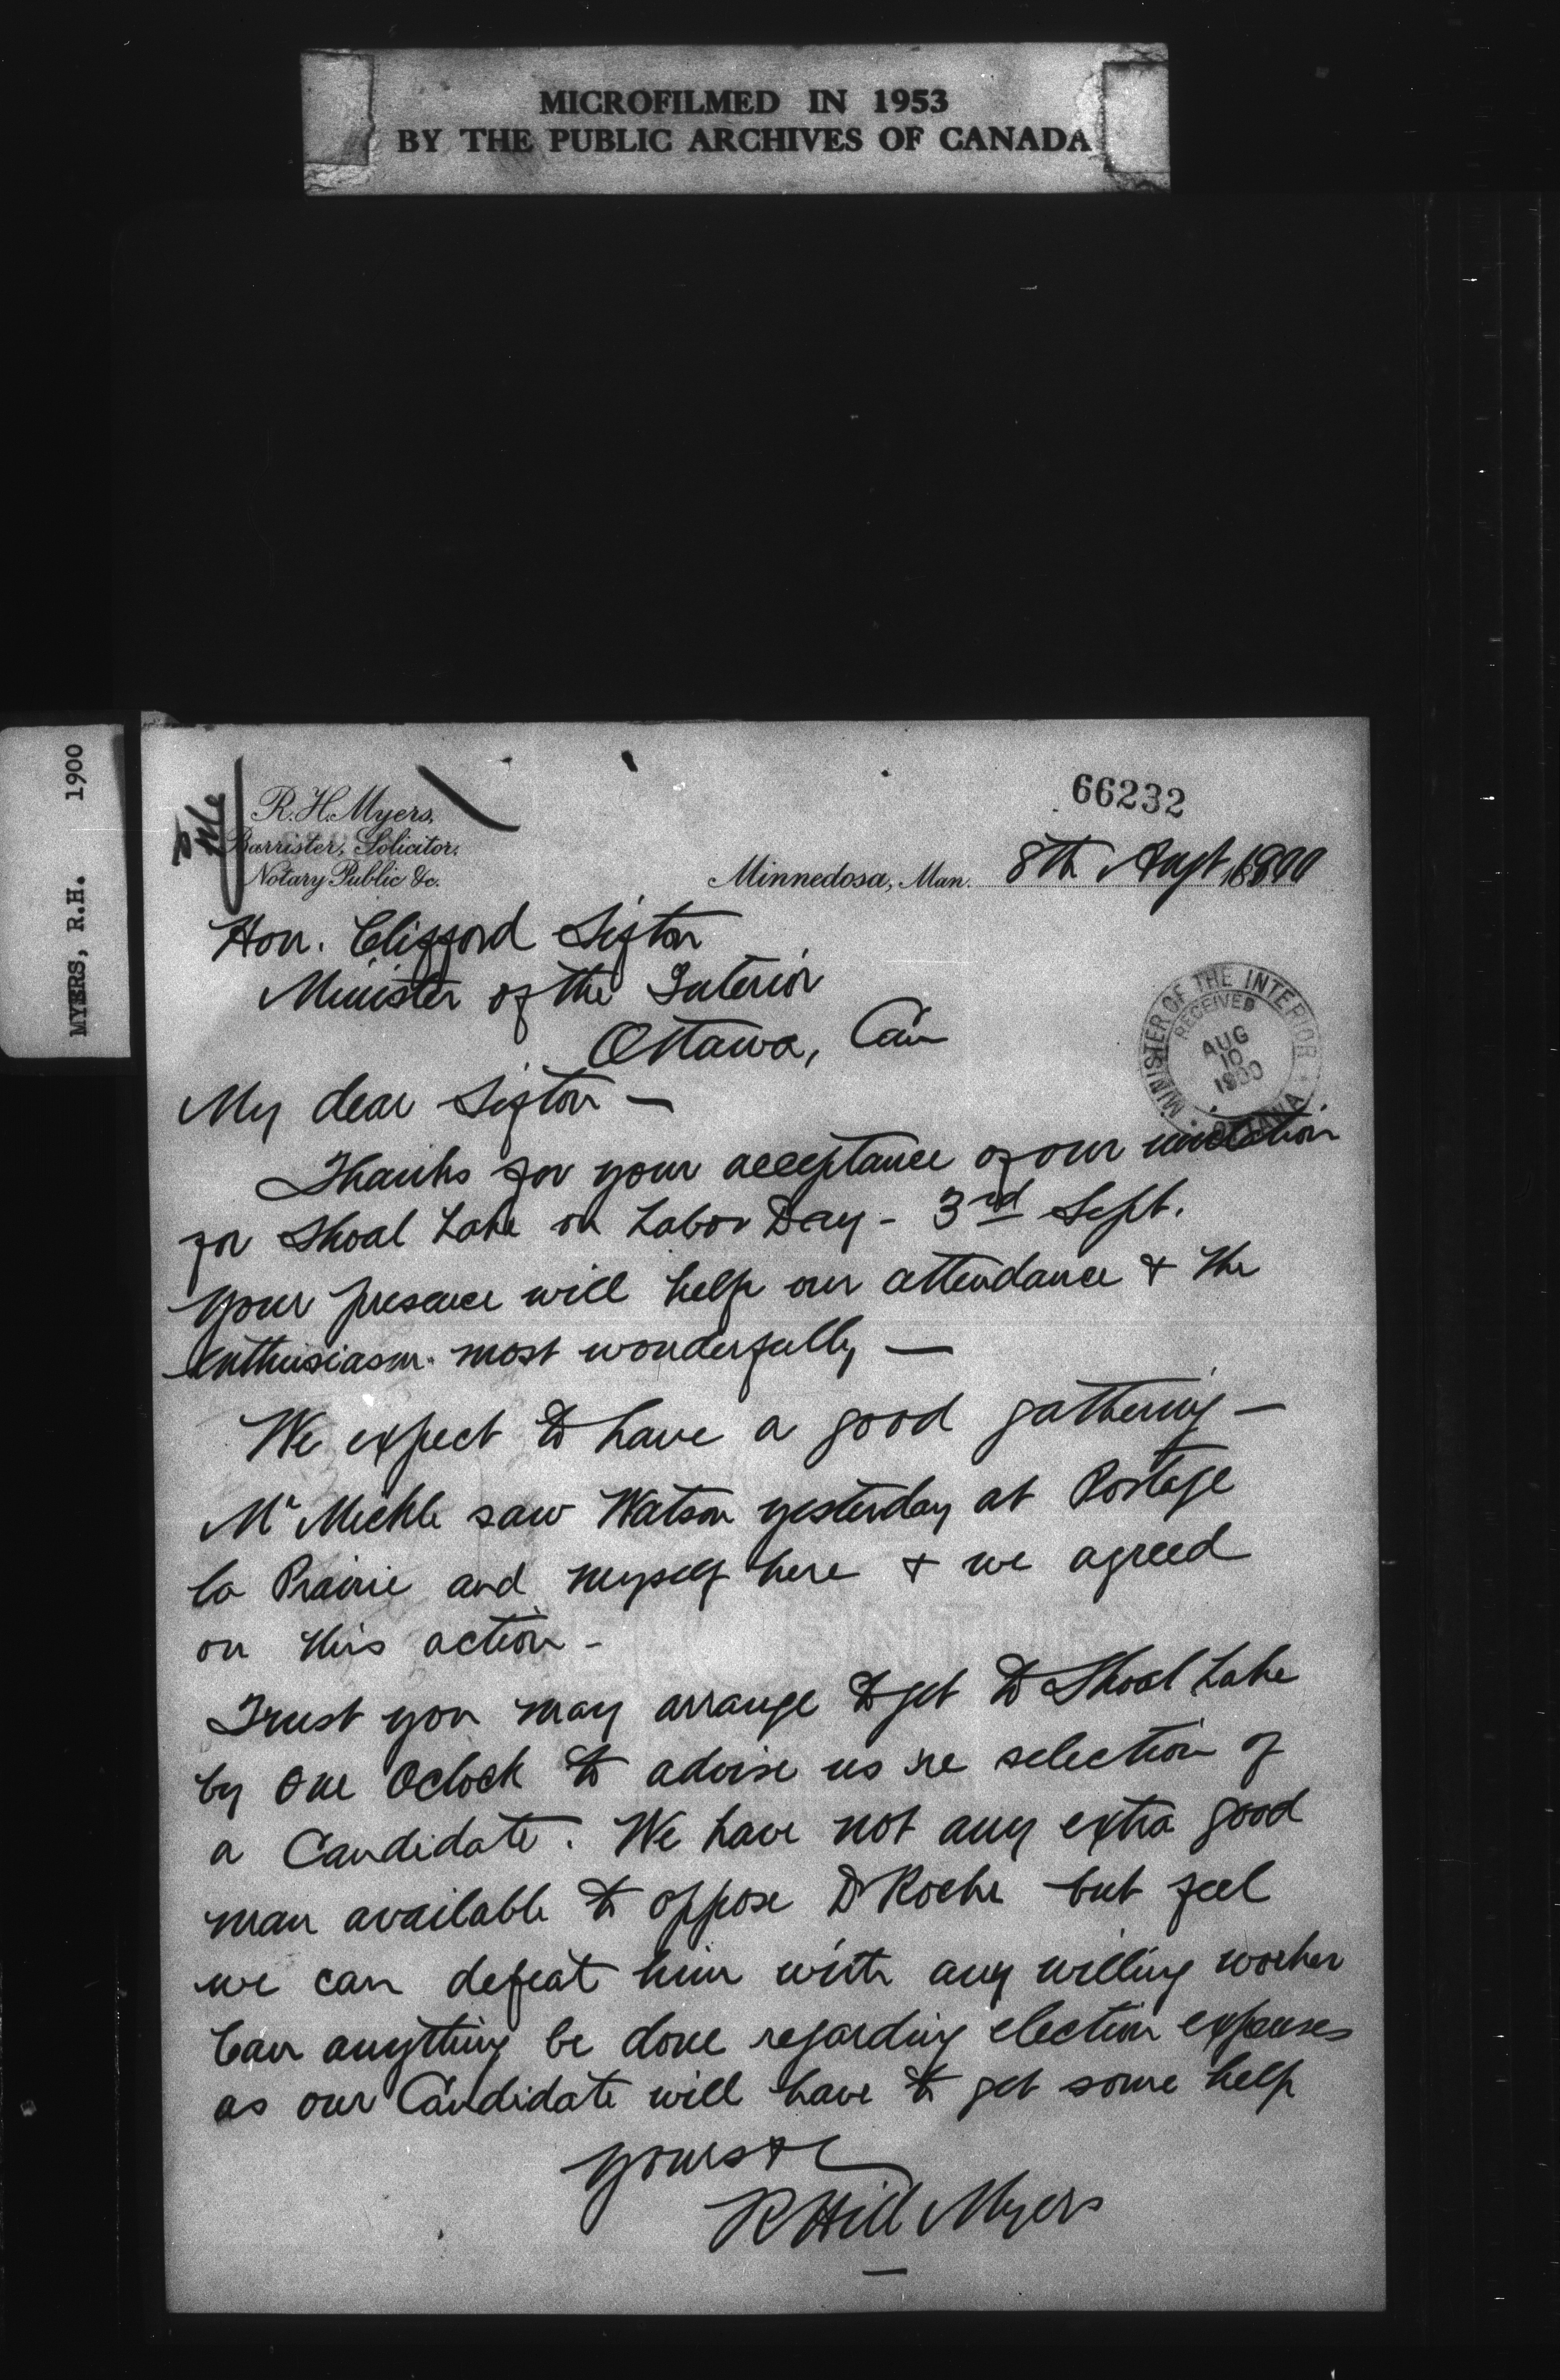 MICROFILMED IN 1953
BY THE PUBLIC ARCHIVES OF CANADA
MYERS, R.H. 1900
66232
R. H. Myers,
Barrister, Solicitor,
Notary Public &c.
Minnedosa, Man. 8th Augt, 1900
Hon. Clifford Sifton
Minister of the Interior
Ottawa, Can
MINISTER OF THE INTERIOR
RECEIVED
AUG
10
1900
OTTAWA
My dear Sifton —
Thanks for your acceptance of our invitation
for Shoal Lake on Labor Day - 3rd Sept.
Your presence will help our attendance & the
enthusiasm most wonderfully —
We expect to have a good gathering —
Mr Mickle saw Watson yesterday at Portage
la Prairie and myself here & we agreed
on this action -
Trust you may arrange to get to Shoal Lake
by one Oclock to advise us re selection of
a Candidate. We have not any extra good
man available to oppose Dr Roche but feel
we can defeat him with any willing worker
Can anything be done regarding election expenses
as our Candidate will have to get some help
Yours &c
R Hill Myers